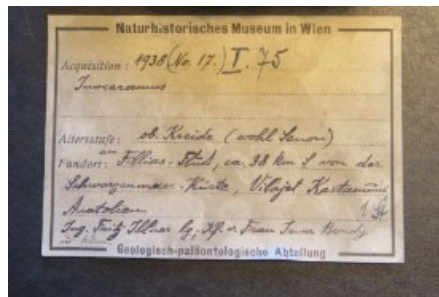 Naturhistorisches Museum in Wien
Acquisition: 1938 (No. 17.) I. 75
Inoceramus
Altersstufe: ob. Kreide (wohl Senon)
Fundort: am Fillias-Fluß, ca. 38 km S von der
Schwarzenmeer-Küste, Vilajet Kastamuni
Anatolien 1 St
Ing. Fritz Illner u. Frau
Geologisch-paläontologische Abteilung